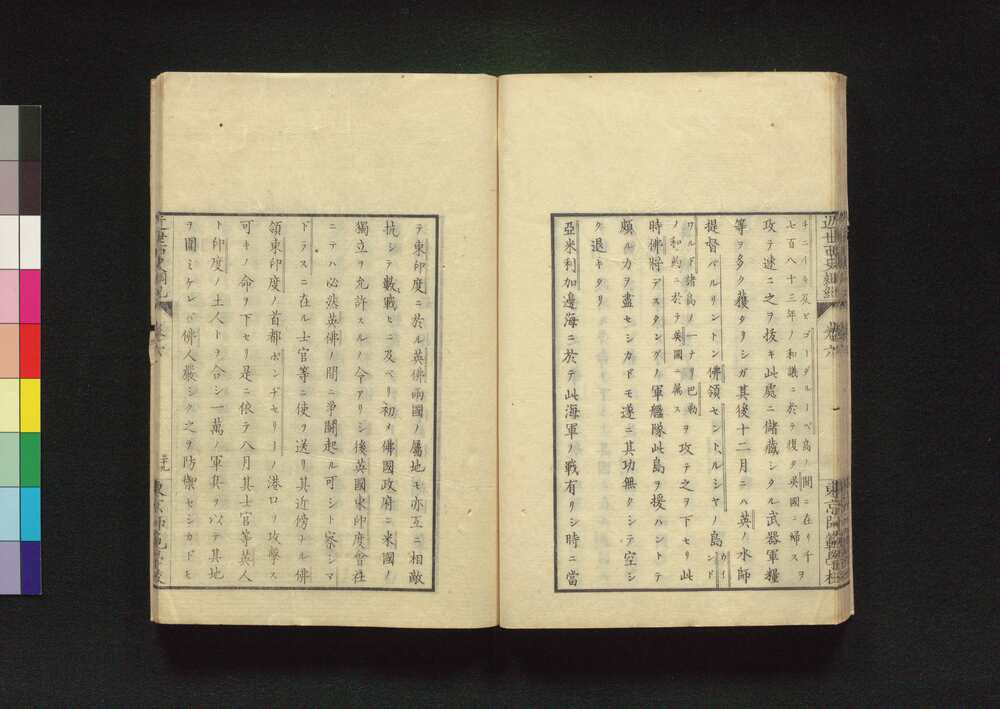 チニイキ及ビゴーダルーペ島ノ間ニ在リ千
七百八十三年ノ和議ニ於テ復タ英國ニ帰ス
攻テ速ニ之ヲ抜キ此處ニ儲蔵シタル武器軍糧
等ヲ多ク獲タリシガ其後十二月ニハ英ノ水師
提督バルリントン佛領セントルシヤノ島
ウインドワルド諸島ノ一ナリ巴勒
ノ和約ニ於テ英國ニ属ス
ヲ攻テ之ヲ下セリ此
時佛將デスタングノ軍艦隊此島ヲ援ハントテ
頗ル力ヲ盡セシカドモ遂ニ其功無クシテ空シ
ク退キタリ
亞米利加邊海ニ於テ此海軍ノ戰有リシ時ニ當
テ東印度ニ於ル英佛兩國ノ屬地モ亦互ニ相敵
抗シテ數戰ヒニ及ベリ初メ佛國政府ニ米國ノ
獨立ヲ允許スルノ令アリシ後英國東印度會社
ニテハ必然英佛ノ間ニ争闘起ル可シト察シマ
ドラスニ在ル士官等ニ使ヲ送リ其近傍ナル佛
領東印度ノ首都ポンヂセリーノ港口ヲ攻撃ス
可キノ命ヲ下セリ是ニ依テ八月其士官等英人
ト印度ノ土人トヲ合シ一萬ノ軍兵ヲ以テ其地
ヲ圍ミケレバ佛人嚴シク之ヲ防禦セシカドモ
卷六